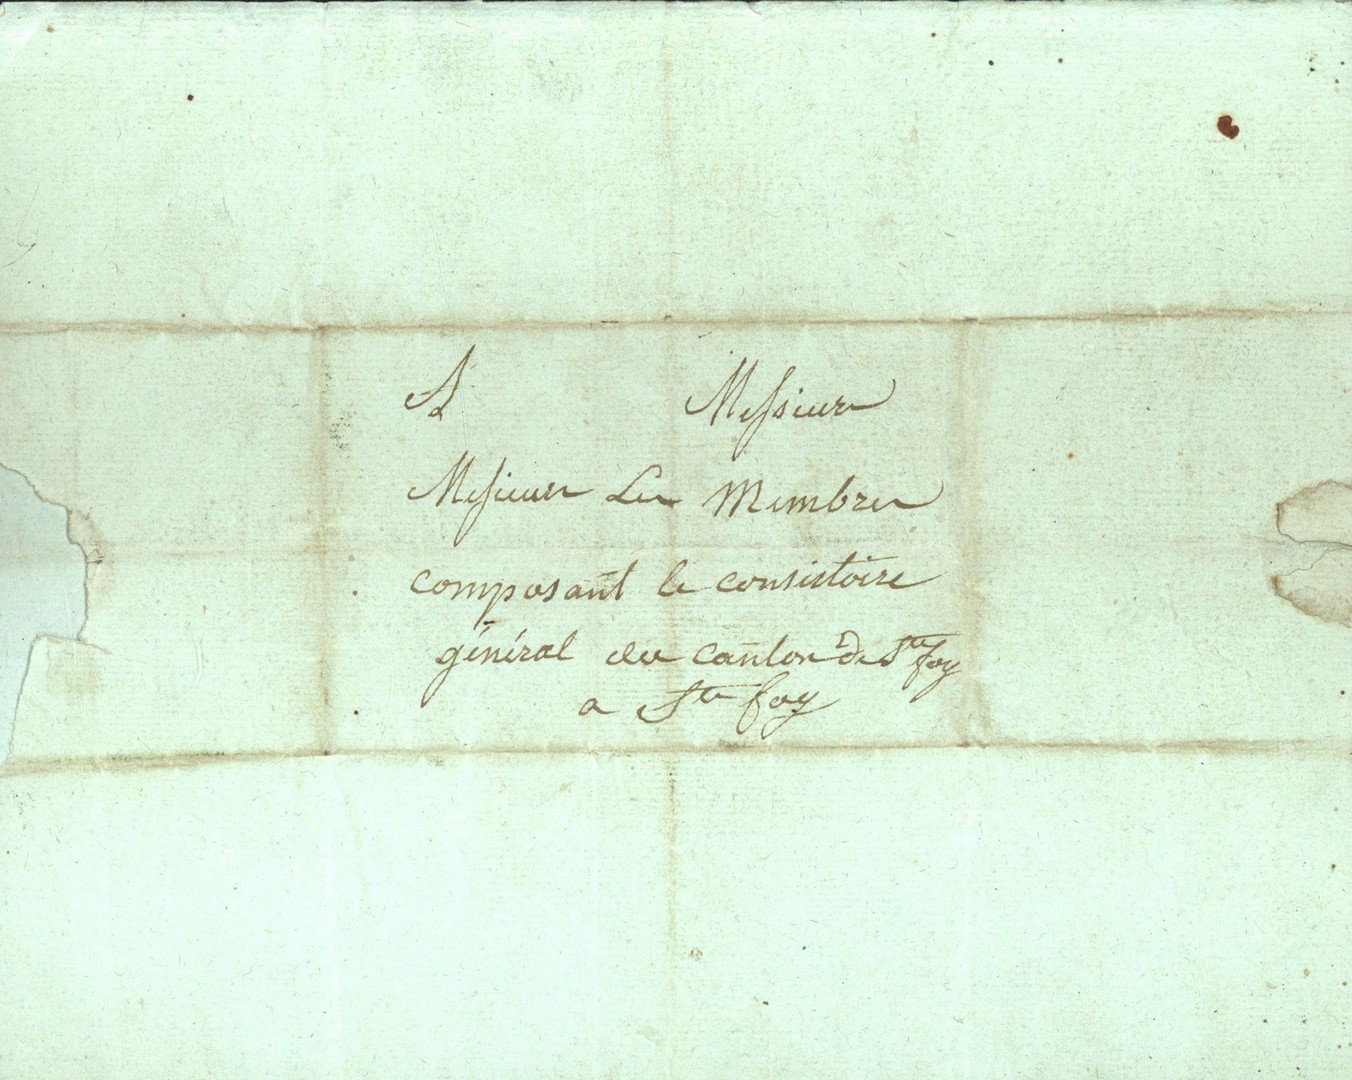 A Messieurs
Messieurs Les Membres
composant le consistoire
général du canton de Ste foy
a Ste foy